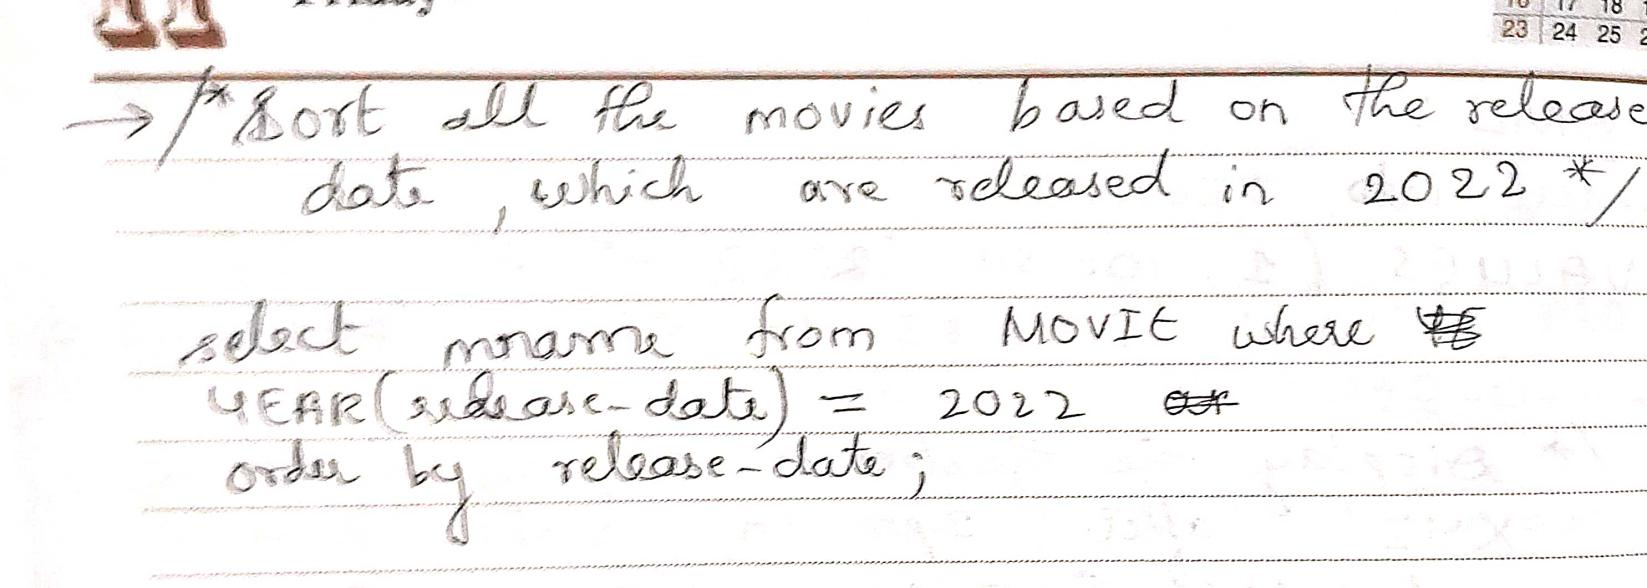 11 Friday
17 18
23 24 25
→ /* Sort all the movies based on the release
date, which are released in 2022 */
select mname from MOVIE where
YEAR(release-date) = 2022
order by release-date;